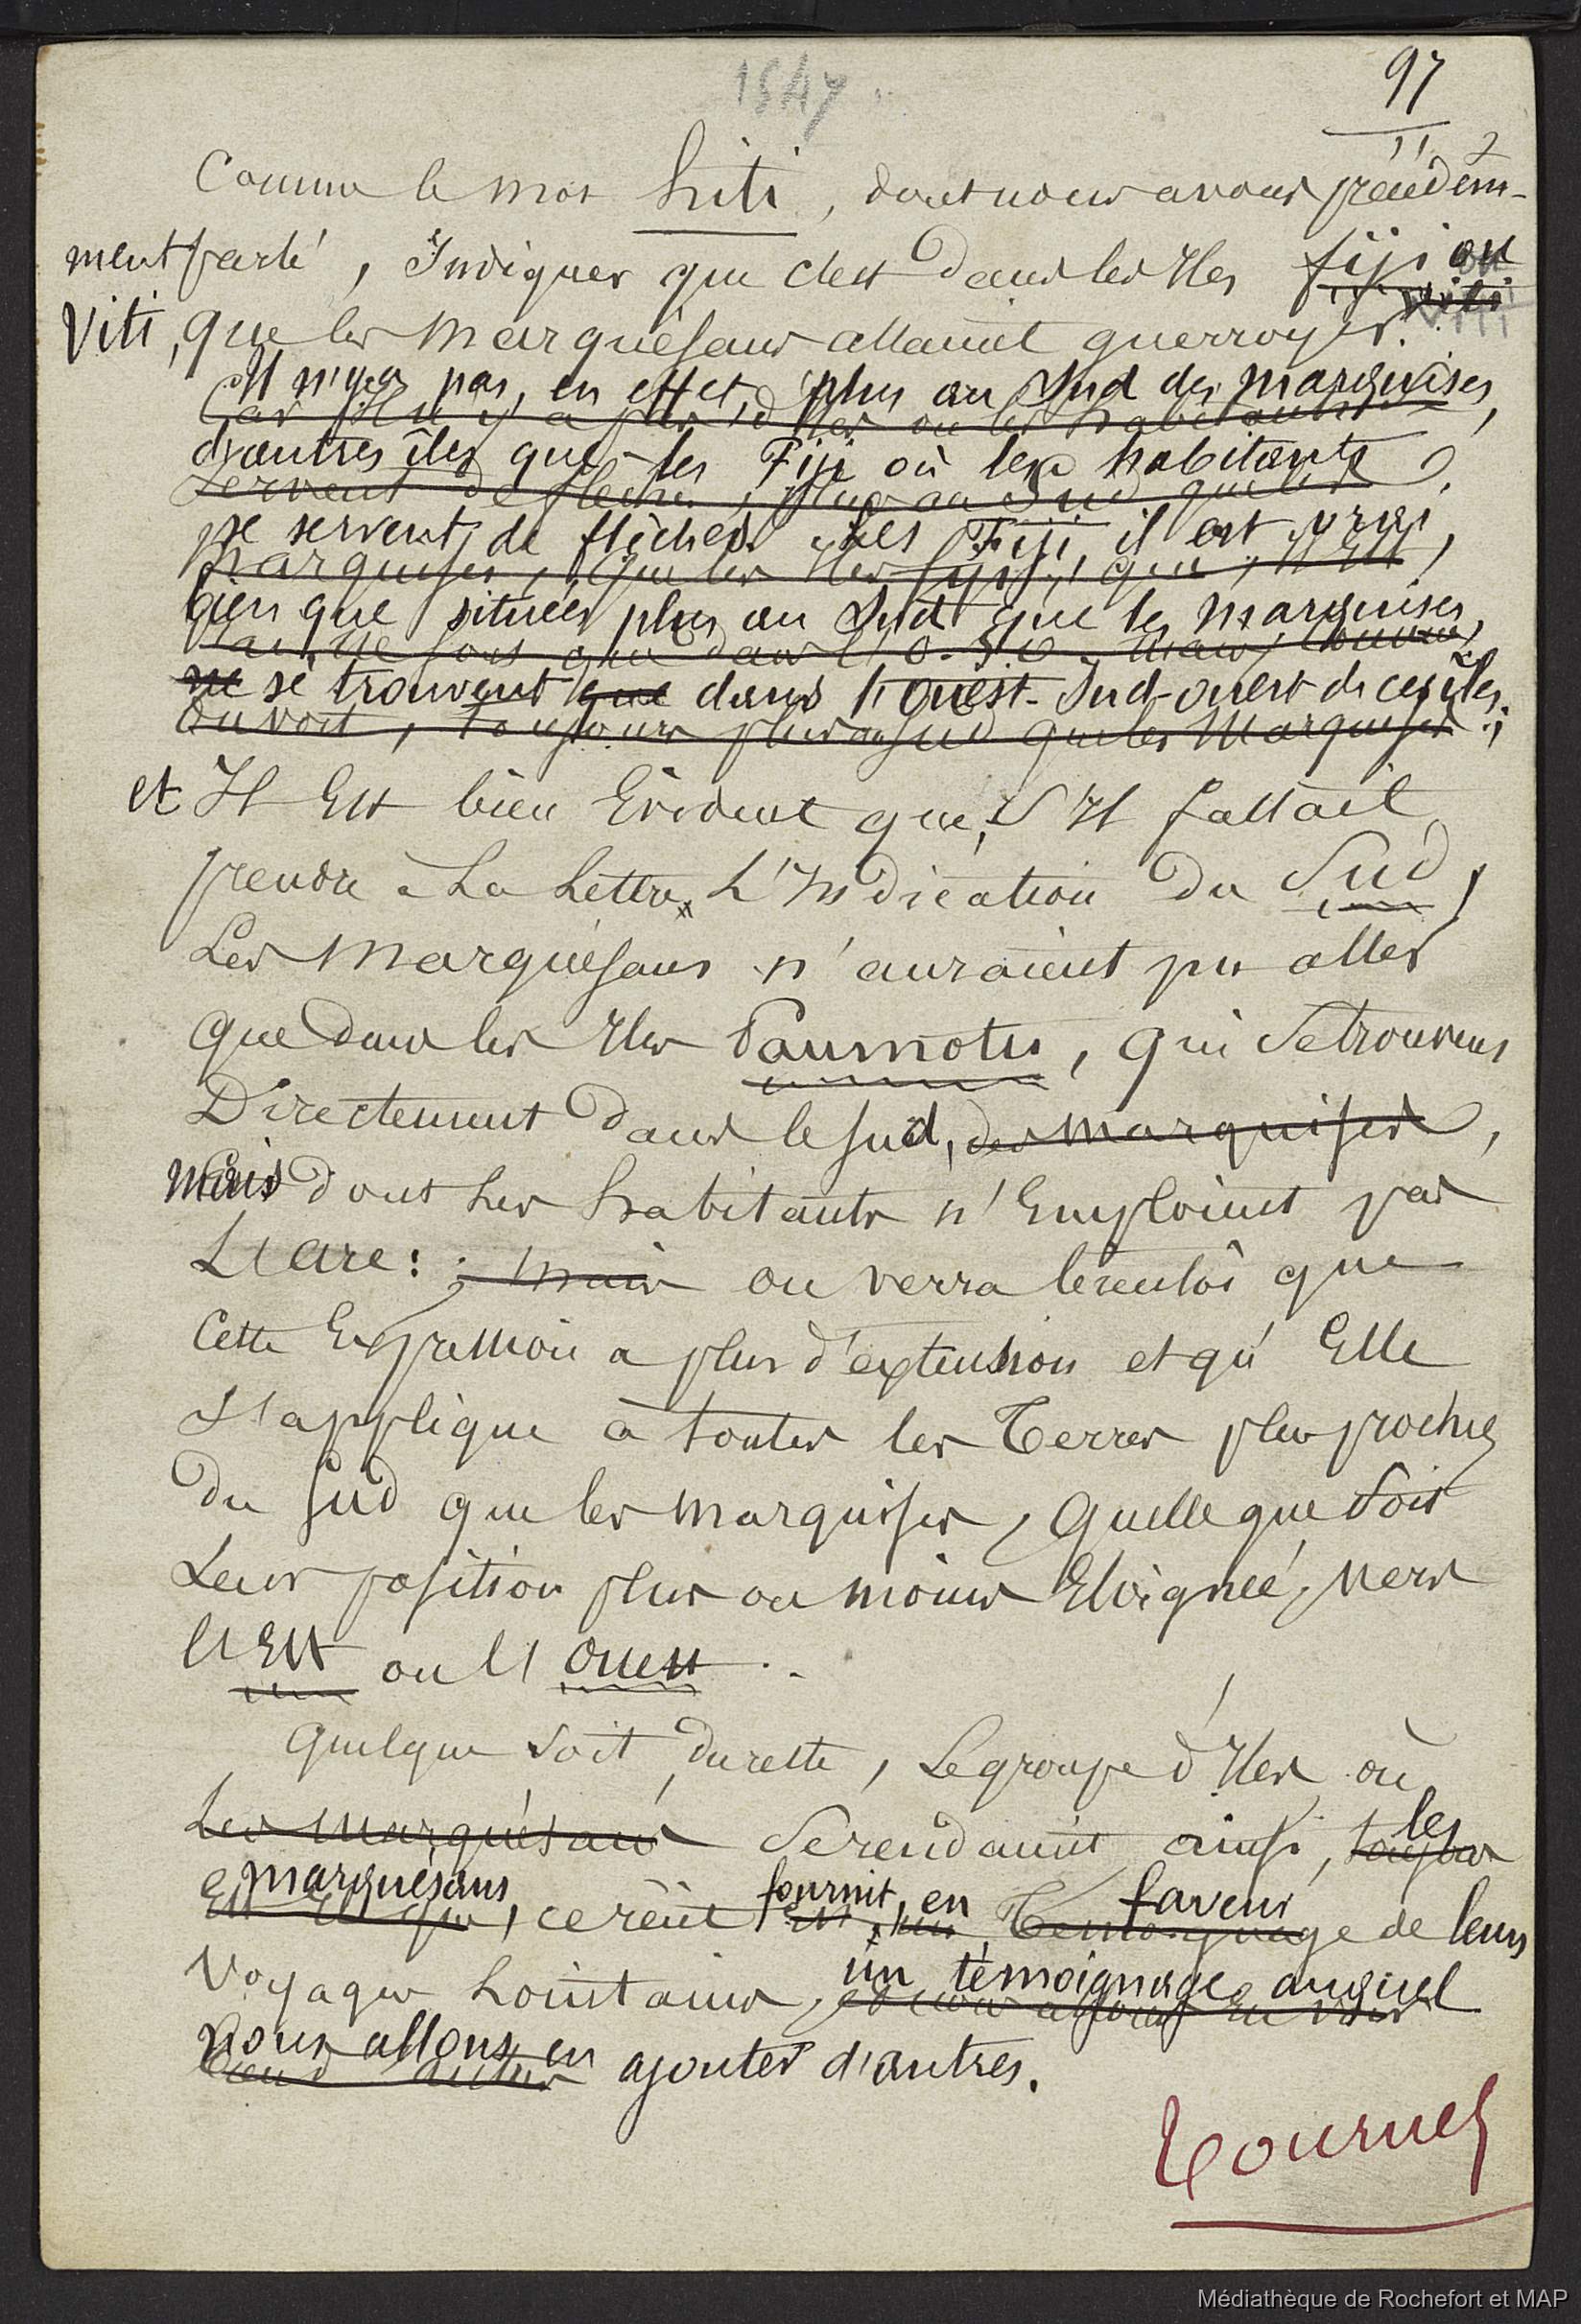 1547
97
Comme le mot hiti, dont nous avons précédem-
ment parlé, Indiquer que c'est dans les Iles fiji ou
Viti, que les Marquésans allaient guerroyer.
Il n'y a pas, en effet, plus au Sud des marquises,
Car Il n'y a pas d'Iles où les habitants
d'autres îles que les Fiji où les habitants
servent de flèches, plus au Sud que les
se servent de flèches. Les Fiji, il est vrai,
marquises, que les Iles fiji, que, Il est
bien que situées plus au Sud que les marquises,
que dans l'O.S.O. mais, comme
ne se trouvent que dans l'ouest-Sud-ouest de ces îles;
on voit, toujours plus au sud que les Marquises;
et Il Est bien Evident que, S'Il fallait
prendre à La Lettre L'Indication du Sud,
Les Marquésans n'auraient pu aller
que dans les Iles Paumotu, qui se trouvent
Directement dans le sud, des marquises,
mais dont les habitants n'Emploient pas
L'arc: ; mais on verra bientôt que
Cette Expression a plus d'extension et qu'Elle
S'applique à toutes les Terres plus proches
Du Sud que les marquises, Quelle que soit
Leur position plus ou moins Eloignée, vers
l'Est ou l'Ouest.
Quelque soit du reste, Le groupe d'Iles où
Les Marquésans Se rendaient ainsi, les
marquésans, ce récit fournit, en faveur de leurs
Témoignage
Voyages Lointains, un témoignage auquel
nous allons en ajouter d'autres.
Tournez
Médiathèque de Rochefort et MAP